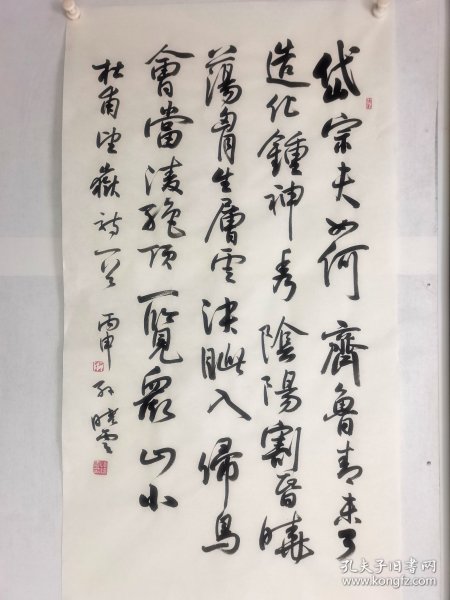 岱宗夫如何齊魯青未了
造化鍾神秀陰陽割昏曉
蕩胸生層雲決眦入歸鳥
會當凌絕頂一覽眾山小
杜甫望嶽詩一首 丙申 孫曉雲
孔夫子旧书网
www.kongfz.com